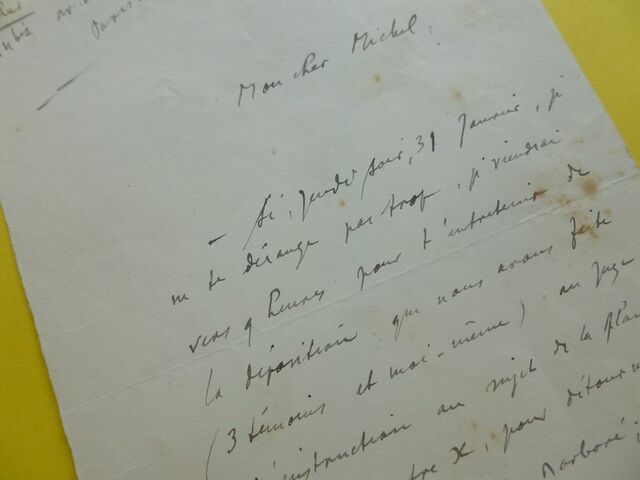 Paris
Mon cher Michel,
– Si, jeudi soir, 31 Janvier, je
ne te dérange pas trop, je viendrai
vers 9 heures pour t'entretenir de
la déposition que nous avons faite
(3 témoins et moi-même) au juge
d'instruction au sujet de la plain
tre X, pour détourn
Marboré;